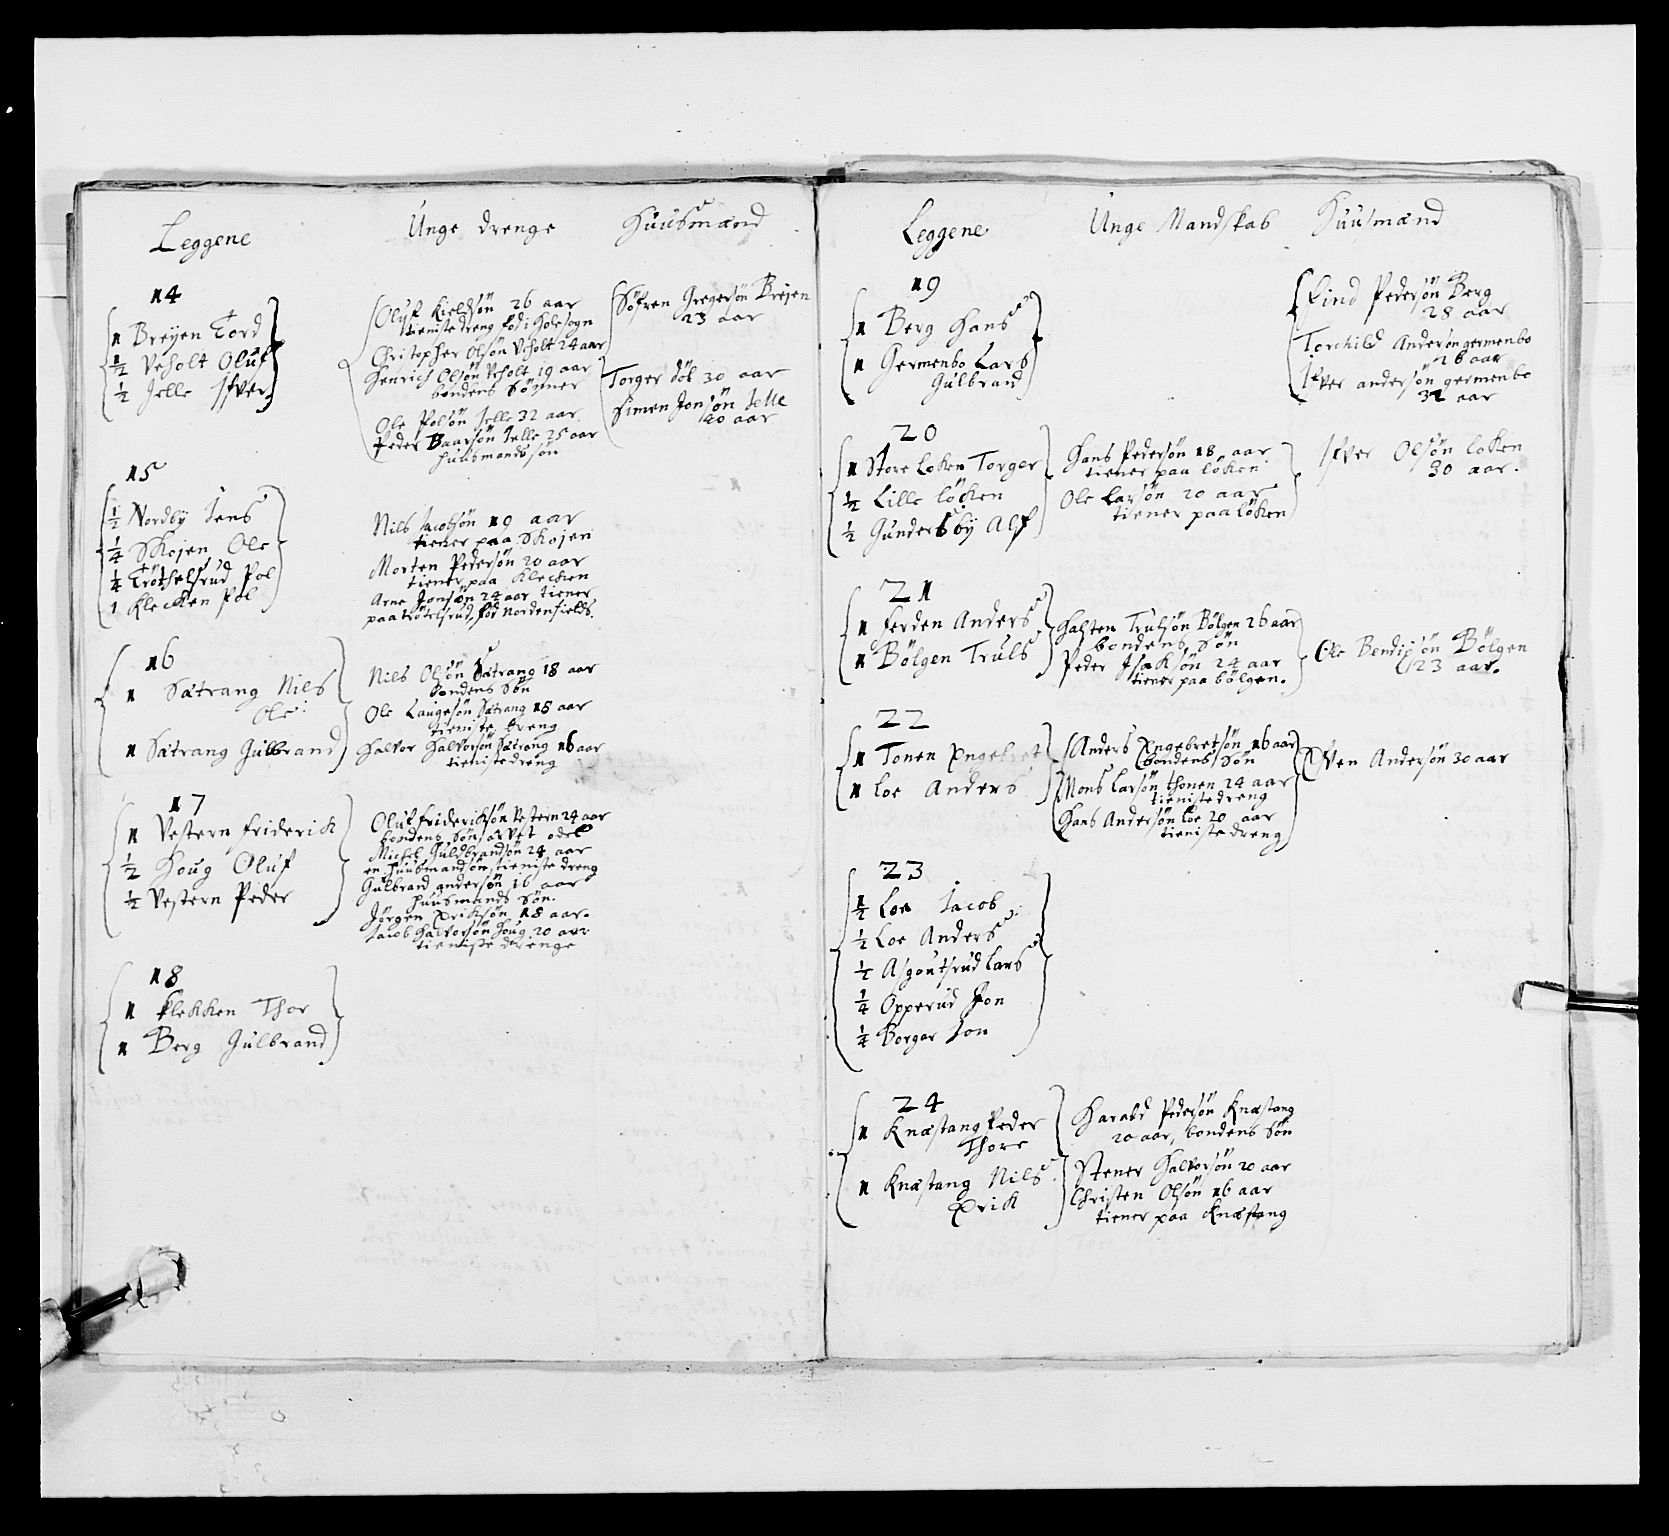 Leggene
Unge drenge
Huusmænd
14
1 Breyen Tord
1/2 Veholt Oluf
1/2 Jelle Ifver
Oluf Kieldsøn 26 aar
tieniste dreng fød i Holesogn
Christopher Olsøn Veholt 24 aar
Henrich Olsøn Veholt 19 aar
bondens Sønner
Ole Polsøn Jelle 32 aar
Peder Baarsøn Jelle 25 aar
huusmands søn
Søfren Gregersøn Breyen
23 aar
Torger döl 30 aar
Simen Jonsøn Jelle
40 aar
15
1/2 Nordby Jens
1/4 Skojen Ole
1/4 Trøtselsrud Pol
1 Klecken Pol
Nils Jacobsøn 19 aar
tiener paa Skojen
Morten Pedersøn 20 aar
tiener paa Klecken
Arne Jonsøn 24 aar tiener
paa trøtelsrud, fød nordenfields.
16
1 Sætrang Nils
Ole
1 Sætrang Gulbrand
Nils Olsøn Sætrang 18 aar
bondens Søn
Ole Laugesøn Sætrang 15 aar
tieniste dreng
Halvor Halvorsøn Sætrang 16 aar
tienistedreng
17
1 Vestern friderik
1/2 Houg Oluf
1/2 Vestern Peder
Oluf frideriksøn Vestern 24 aar
bondens Søn arvet odel
Michel Guldbrandsøn 24 aar
en huusmandsøn, tieniste dreng
Gulbrand andersøn 16 aar
huusmands Søn.
Jørgen Eriksøn 18 aar.
Jacob Halvorsøn Houg 20 aar
tieniste drenge
18
1 flekken Thor
1 Berg Gulbrand
Leggene
Unge Mandskab
Huusmænd
19
1 Berg Hans
1 Germenbo Lars
Gulbrand
Find Pedersøn Berg
28 aar
Torchild Andersøn germenbo
26 aar
Ifver andersøn germenbo
32 aar
20
1 Store Loken Torger
1/2 Lille löken
1/2 Gundersby Alf
Hans Pedersøn 18 aar
tiener paa löken
Ole Larsøn 20 aar
tiener paa löken
Ifver Olsøn loken
30 aar.
21
1 ferden Anders
1 Bölgen Truls
Halsten Trulsøn Bölgen 26 aar
bondens Søn
Peder Isaksøn 24 aar
tiener paa bölgen.
Ole Bendixsøn Bölgen
23 aar.
22
1 Tonen Engebret
1 Loe Anders
Anders Engebretsøn 16 aar
bondens Søn
Mons Larsøn thonen 24 aar
tienistedreng
Hans Andersøn Loe 20 aar
tieniste dreng
Sven Andersøn 30 aar
23
1/2 Loe Jacob
1/2 Loe Anders
1/2 Asgoutsrud Lars
1/4 Opperud Jon
1/4 Borgar Jon
24
1 Knæstang Peder
Thore
1 Knæstang Nils
Erik
Harald Pedersøn Knæstang
20 aar, bondens Søn
Stener Halvorsøn 20 aar
Christen Olsøn 16 aar
tiener paa Knæstang